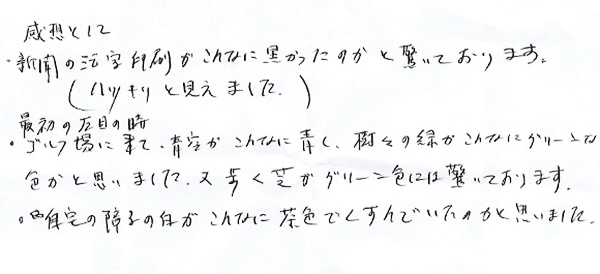 感想として
・新聞の活字印刷がこんなに黒かったのかと驚いております。
(ハッキリと見えました。)
最初の左目の時
・ゴルフ場に来て、青空がこんなに青く、樹々の緑がこんなにグリーンな
色かと思いました。又歩く芝がグリーン色には驚いております。
。自宅の障子の白がこんなに茶色でくすんでいたのかと思いました。